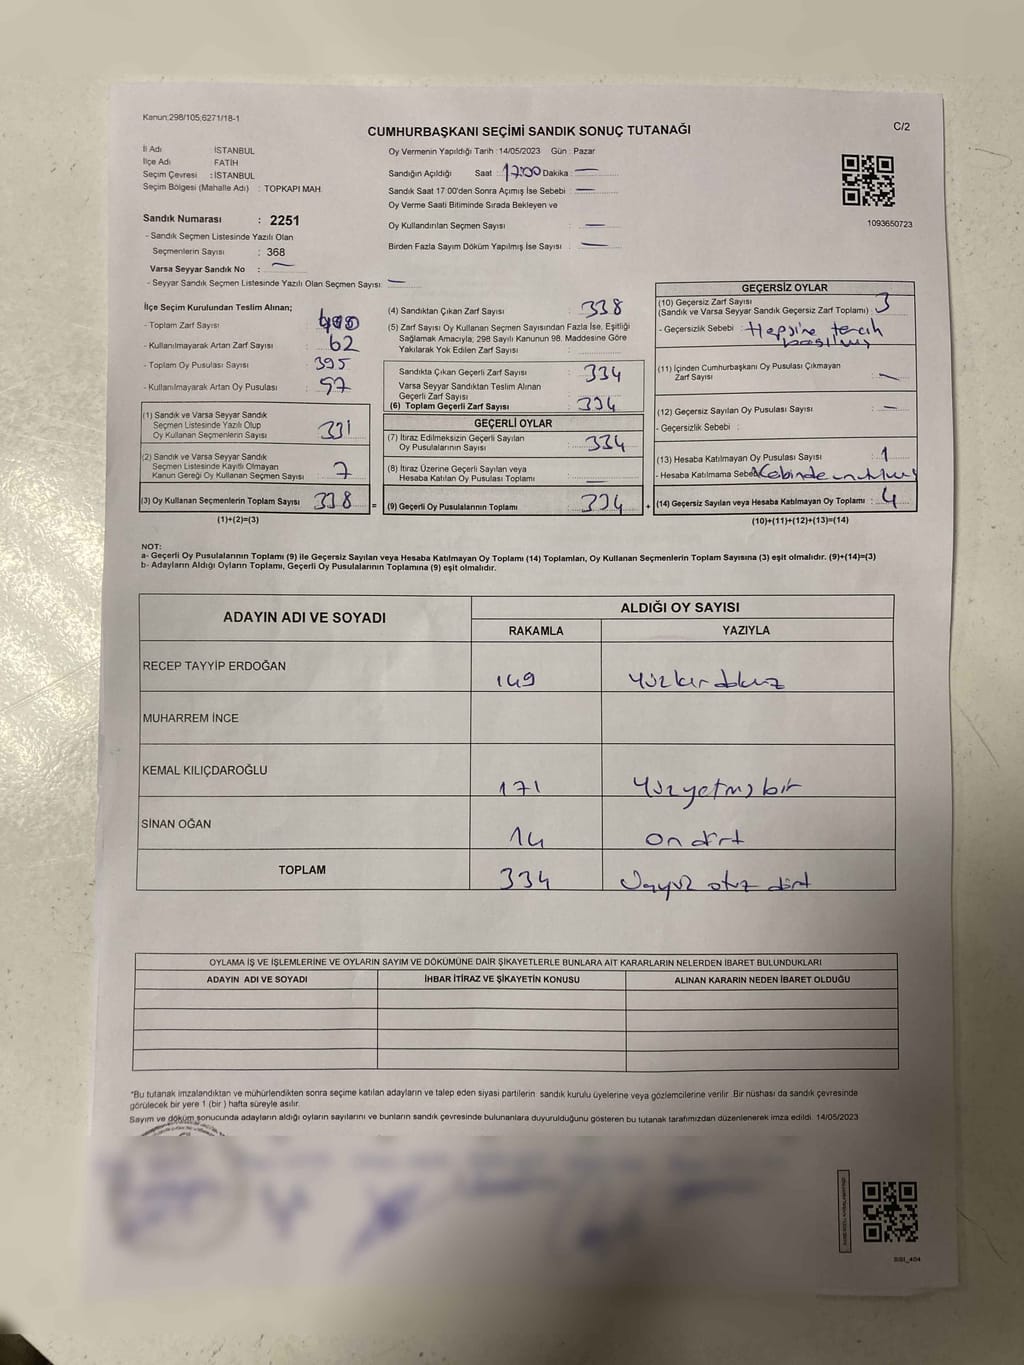 Kanun:298/105;6271/18-1
CUMHURBAŞKANI SEÇİMİ SANDIK SONUÇ TUTANAĞI
C/2
İl Adı İSTANBUL
İlçe Adı FATİH
Seçim Çevresi : İSTANBUL
Seçim Bölgesi (Mahalle Adı) : TOPKAPI MAH
Sandık Numarası : 2251
- Sandık Seçmen Listesinde Yazılı Olan
Seçmenlerin Sayısı : 368
Varsa Seyyar Sandık No : —
- Seyyar Sandık Seçmen Listesinde Yazılı Olan Seçmen Sayısı: —
Oy Vermenin Yapıldığı Tarih :14/05/2023 Gün : Pazar
Sandığın Açıldığı Saat : 17:00 Dakika : —
Sandık Saat 17:00'den Sonra Açımış İse Sebebi : —
Oy Verme Saati Bitiminde Sırada Bekleyen ve
Oy Kullandırılan Seçmen Sayısı : —
Birden Fazla Sayım Döküm Yapılmış İse Sayısı : —
1093650723
İlçe Seçim Kurulundan Teslim Alınan;
- Toplam Zarf Sayısı :
- Kullanılmayarak Artan Zarf Sayısı : 62
- Toplam Oy Pusulası Sayısı : 395
- Kullanılmayarak Artan Oy Pusulası : 57
(1) Sandık ve Varsa Seyyar Sandık
Seçmen Listesinde Yazılı Olup
Oy Kullanan Seçmenlerin Sayısı : 331
(2) Sandık ve Varsa Seyyar Sandık
Seçmen Listesinde Kayıtlı Olmayan
Kanun Gereği Oy Kullanan Seçmen Sayısı : 7
(3) Oy Kullanan Seçmenlerin Toplam Sayısı : 338 =
(1)+(2)=(3)
(4) Sandıktan Çıkan Zarf Sayısı : 338
(5) Zarf Sayısı Oy Kullanan Seçmen Sayısından Fazla İse, Eşitliği
Sağlamak Amacıyla; 298 Sayılı Kanunun 98. Maddesine Göre
Yakılarak Yok Edilen Zarf Sayısı :
Sandıkta Çıkan Geçerli Zarf Sayısı : 334
Varsa Seyyar Sandıktan Teslim Alınan
Geçerli Zarf Sayısı :
(6) Toplam Geçerli Zarf Sayısı : 334
GEÇERLİ OYLAR
(7) İtiraz Edilmeksizin Geçerli Sayılan
Oy Pusulalarının Sayısı : 334
(8) İtiraz Üzerine Geçerli Sayılan veya
Hesaba Katılan Oy Pusulası Toplamı : —
(9) Geçerli Oy Pusulalarının Toplamı : 334 +
GEÇERSİZ OYLAR
(10) Geçersiz Zarf Sayısı
(Sandık ve Varsa Seyyar Sandık Geçersiz Zarf Toplamı) : 3
- Geçersizlik Sebebi : Hepsine tercih
basılmış
(11) İçinden Cumhurbaşkanı Oy Pusulası Çıkmayan
Zarf Sayısı : —
(12) Geçersiz Sayılan Oy Pusulası Sayısı : —
- Geçersizlik Sebebi :
(13) Hesaba Katılmayan Oy Pusulası Sayısı : 1
- Hesaba Katılmama Sebebi Kabinde
(14) Geçersiz Sayılan veya Hesaba Katılmayan Oy Toplamı : 4
(10)+(11)+(12)+(13)=(14)
NOT:
a- Geçerli Oy Pusulalarının Toplamı (9) ile Geçersiz Sayılan veya Hesaba Katılmayan Oy Toplamı (14) Toplamları, Oy Kullanan Seçmenlerin Toplam Sayısına (3) eşit olmalıdır. (9)+(14)=(3)
b- Adayların Aldığı Oyların Toplamı, Geçerli Oy Pusulalarının Toplamına (9) eşit olmalıdır.
ADAYIN ADI VE SOYADI
ALDIĞI OY SAYISI
RAKAMLA YAZIYLA
RECEP TAYYİP ERDOĞAN 149
MUHARREM İNCE
KEMAL KILIÇDAROĞLU 171 Yüzyetmiş bir
SİNAN OĞAN 14 On dört
TOPLAM 334 Üçyüz otuz dört
OYLAMA İŞ VE İŞLEMLERİNE VE OYLARIN SAYIM VE DÖKÜMÜNE DAİR ŞİKAYETLERLE BUNLARA AİT KARARLARIN NELERDEN İBARET BULUNDUKLARI
ADAYIN ADI VE SOYADI İHBAR İTİRAZ VE ŞİKAYETİN KONUSU ALINAN KARARIN NEDEN İBARET OLDUĞU
*Bu tutanak imzalandıktan ve mühürlendikten sonra seçime katılan adayların ve talep eden siyasi partilerin sandık kurulu üyelerine veya gözlemcilerine verilir .Bir nüshası da sandık çevresinde
görülecek bir yere 1 (bir ) hafta süreyle asılır.
Sayım ve döküm sonucunda adayların aldığı oyların sayılarını ve bunların sandık çevresinde bulunanlara duyurulduğunu gösteren bu tutanak tarafımızdan düzenlenerek imza edildi. 14/05/2023